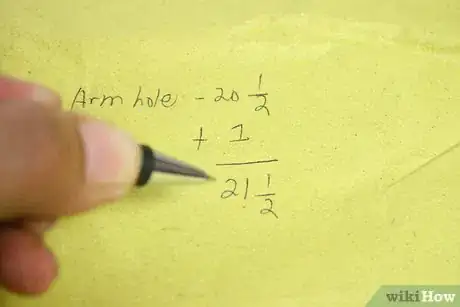 Arm hole - 20 1/2
+ 1
21 1/2
wikiHow